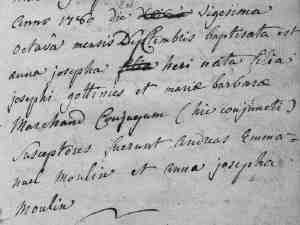 anno 1780 die vigesima
octava mensis Decembris baptisata est
anna josepha heri nata filia
josephi gottines et mariæ barbaræ
Marchand Conjugum (hic conjuncti)
Susceptores fuerunt andreas Emma-
nuel moulin et anna josepha
moulin